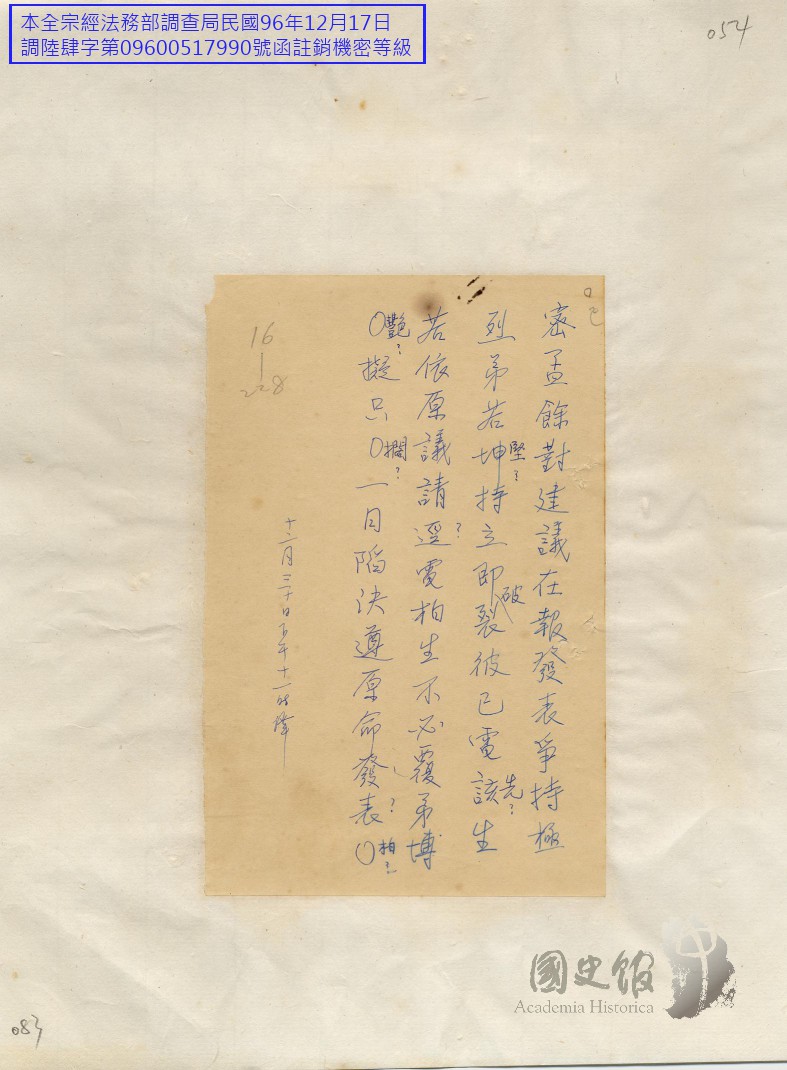 本全宗經法務部調查局民國96年12月17日
調陸肆字第09600517990號函註銷機密等級
054
密孟餘對建議在報發表爭持極
烈弟若坤持立即裂彼已電該生
堅?
破
先?
若依原議請逕電柏生不必覆弟博
?
艷?
擬只〇一日陷決遵原命發表〇
擱?
?
柏
十二月三十日下午十一時
16
228
國史館
Academia Historica
083